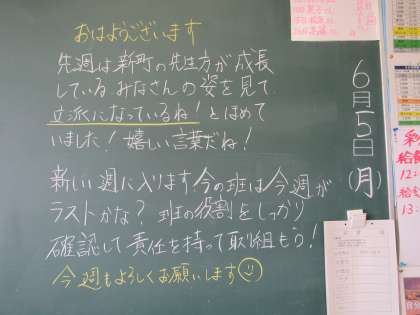 おはようございます
先週は新町の先生方が成長
しているみなさんの姿を見て
立派になっているね！とほめて
いました！嬉しい言葉だね！
新しい週に入ります今の班は今週が
ラストかな？班の役割をしっかり
確認して責任を持って取り組もう！
今週もよろしくお願いします
6月5日(月)